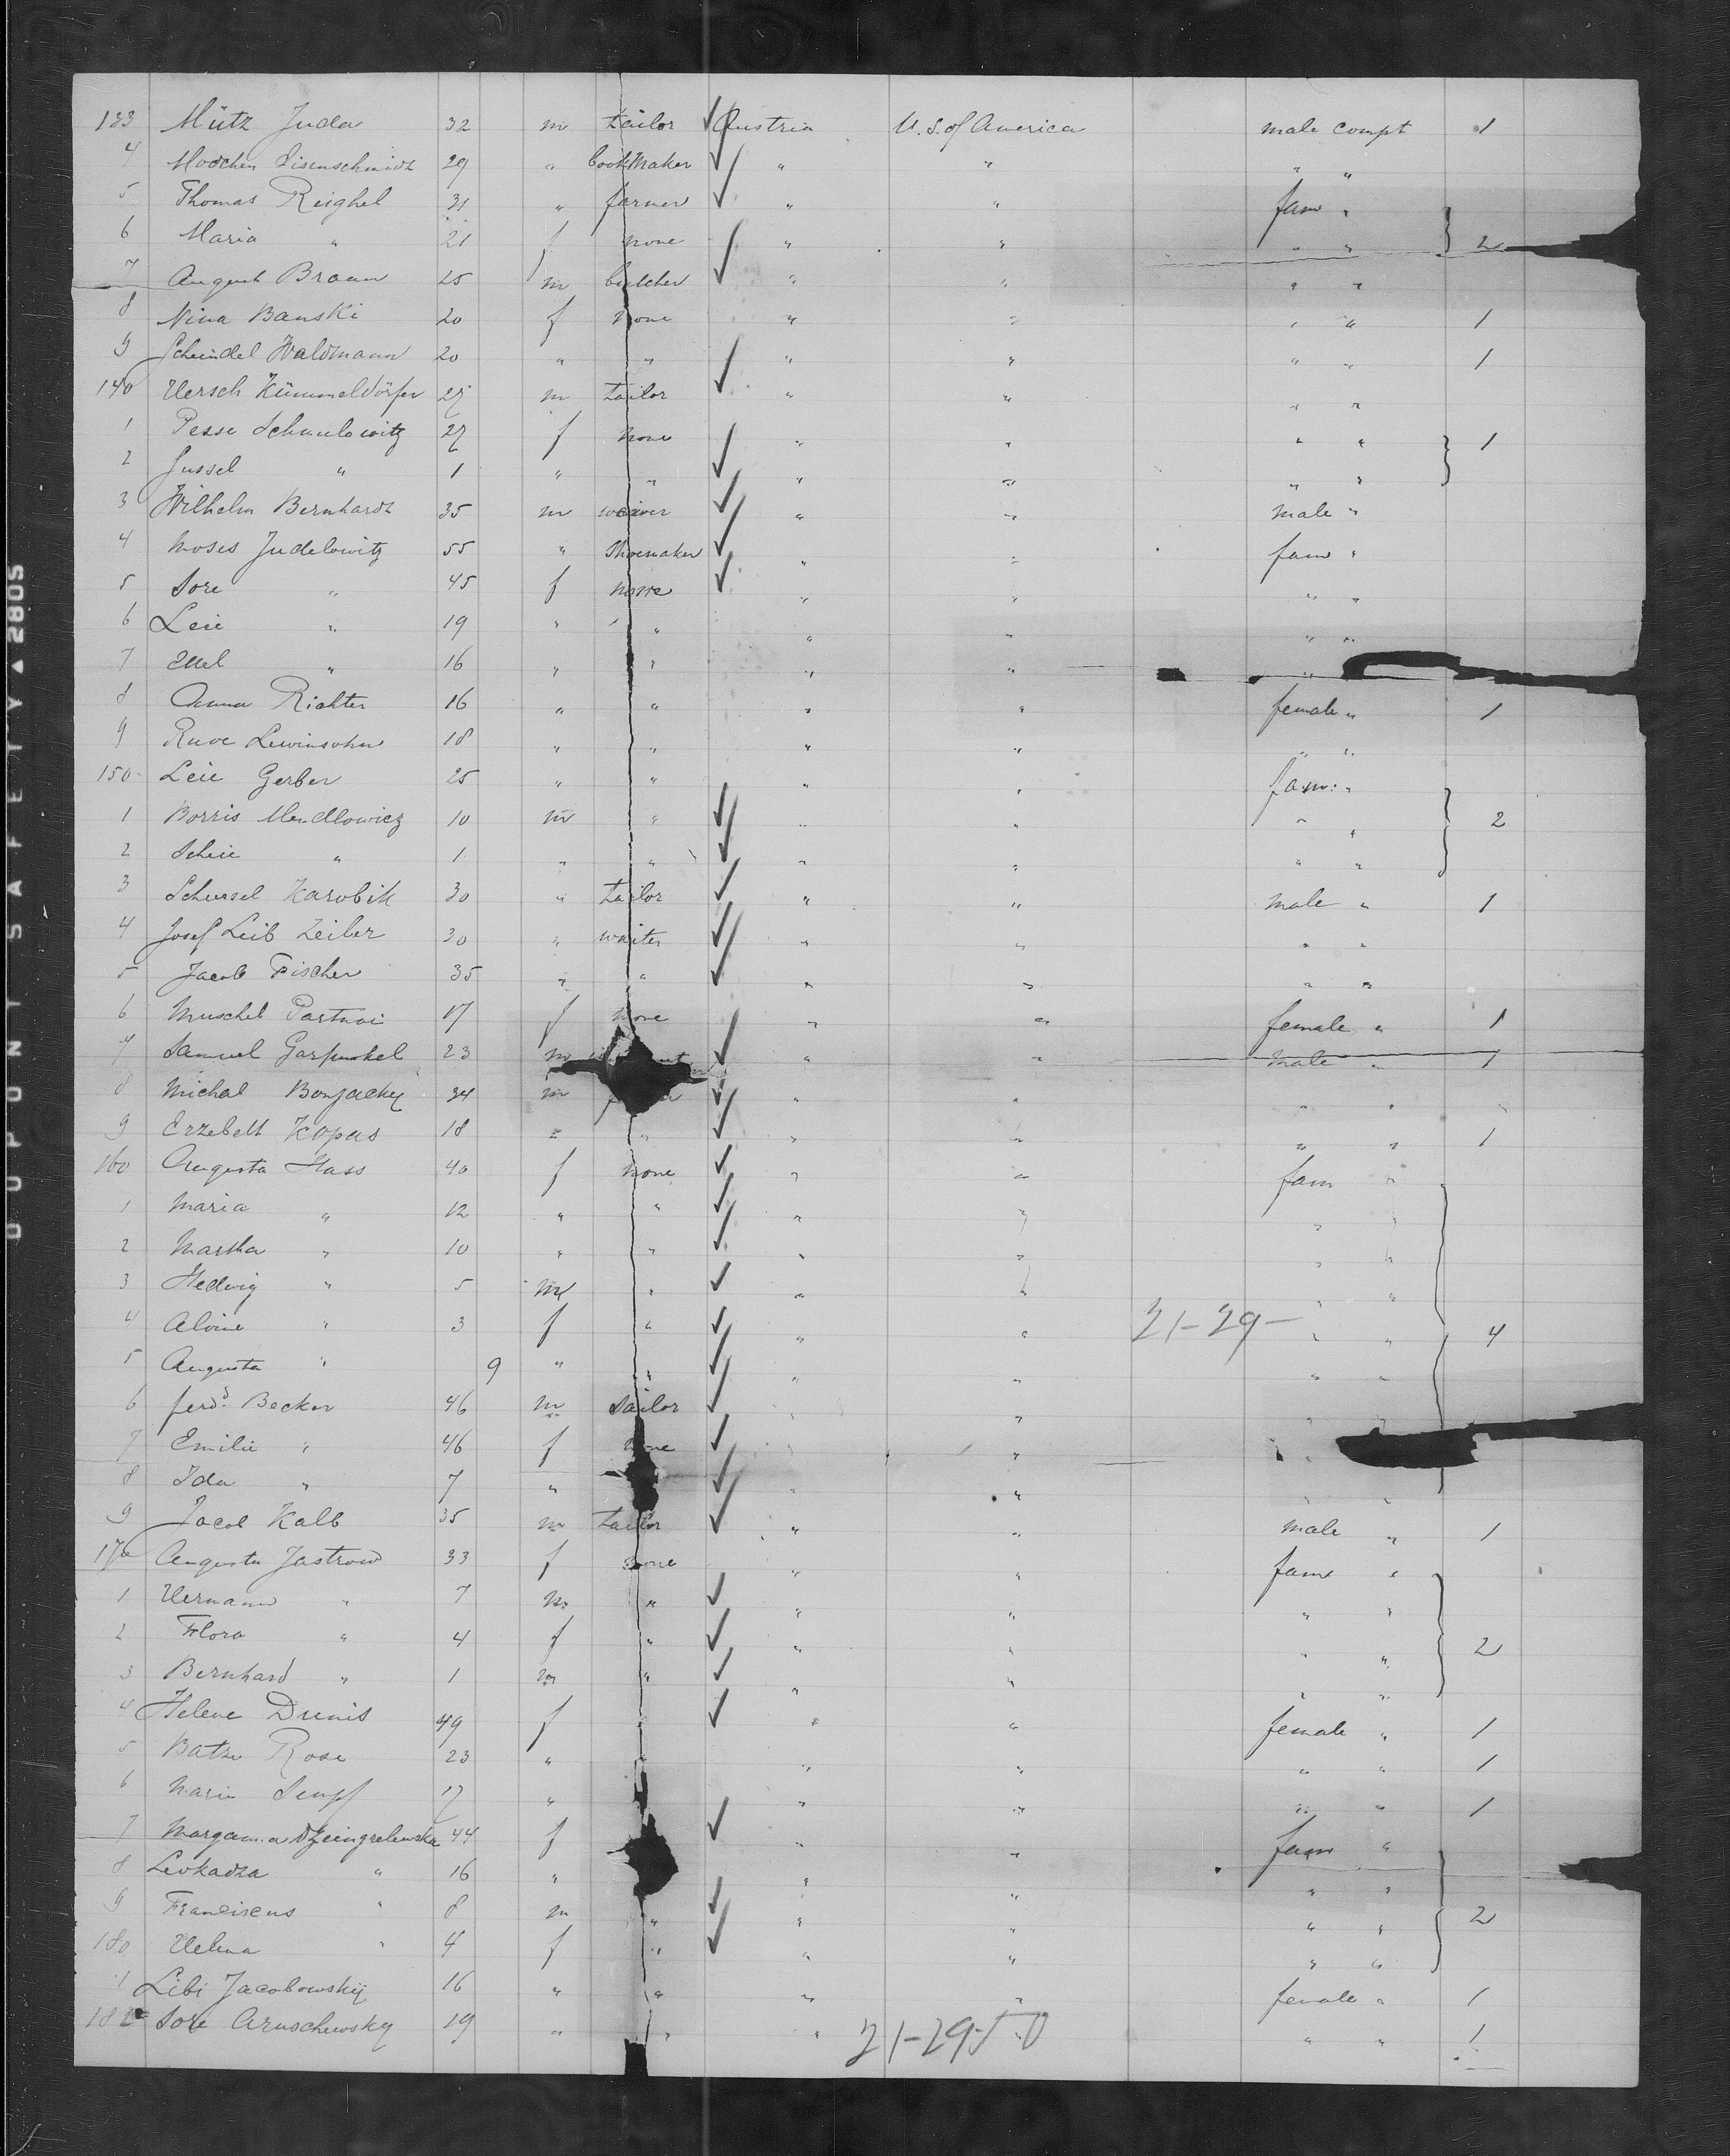 133 Mütz Juda 32 m tailor Austria U.S. of America male compt 1
4 Modchen Eisenschmidt 29 " bookmaker " " " "
5 Thomas Reighel 31 " farmer " " fam "
6 Maria " 21 f none " " " " 2
7 August Braun 25 m butcher " " " "
8 Nina Banski 20 f none " " " " 1
9 Scheindel Waldmann 20 " " " " " " 1
140 Hersch Kümmeldörfer 27 m tailor " " " "
1 Pesse Schmulowitz 27 f none " " " " 1
2 Jussel " 1 " " " " " "
3 Wilhelm Bernhardt 35 m weaver " " male "
4 Moses Judelowitz 55 " Shoemaker " " fam "
5 Sore " 45 f none " " " "
6 Leie " 19 " " " " " "
7 Ettel " 16 " " " " "
8 Anna Richter 16 " " " " female " 1
9 Ruve Lewinsohn 18 " " " " " "
150 Leie Gerber 25 " " " " fam: "
1 Borris Mendlowicz 10 m " " " " " 2
2 Scheie " 1 " " " " " "
3 Schussel Karobik 30 " tailor " " male " 1
4 Josef Leib Zeiler 30 " waiter " " " "
5 Jacob Fischer 35 " " " " " "
6 Muschel Partnoi 17 f none " " female " 1
7 Samuel Garfunkel 23 m " " male " 1
8 Michal Bonjacky 34 m " " " "
9 Erzebett Kopas 18 " " " " " " 1
160 Augusta Hass 40 f none " " fam "
1 Maria " 12 " " " " " "
2 Martha " 10 " " " " " "
3 Hedwig " 5 m " " " " "
4 Aloine " 3 f " " " 21-29- " " 4
5 Augusta " 9 " " " " " "
6 ferd. Becker 46 m Sailor " " " "
7 Emilie " 46 f none " " "
8 Ida " 7 " " " " "
9 Jacob Kalb 35 m tailor " " male " 1
170 Augusta Jastrow 33 f none " " fam "
1 Hermann " 7 m " " " " "
2 Flora " 4 f " " " " " 2
3 Bernhard " 1 m " " " " "
4 Helene Drenis 49 f " " " female " 1
5 Batze Rose 23 " " " " " " 1
6 Marie Senff 17 " " " " " 1
7 44 f " " fam "
8 Leokadza " 16 " " " " "
9 Franciscus " 8 m " " " " " 2
180 Helena " 4 f " " " " "
1 Libi Jacobowskij 16 " " " " female " 1
182 Sore Aruschewsky 19 " " " 21-29-50 " " " 1
DUPONT SAFETY 2805